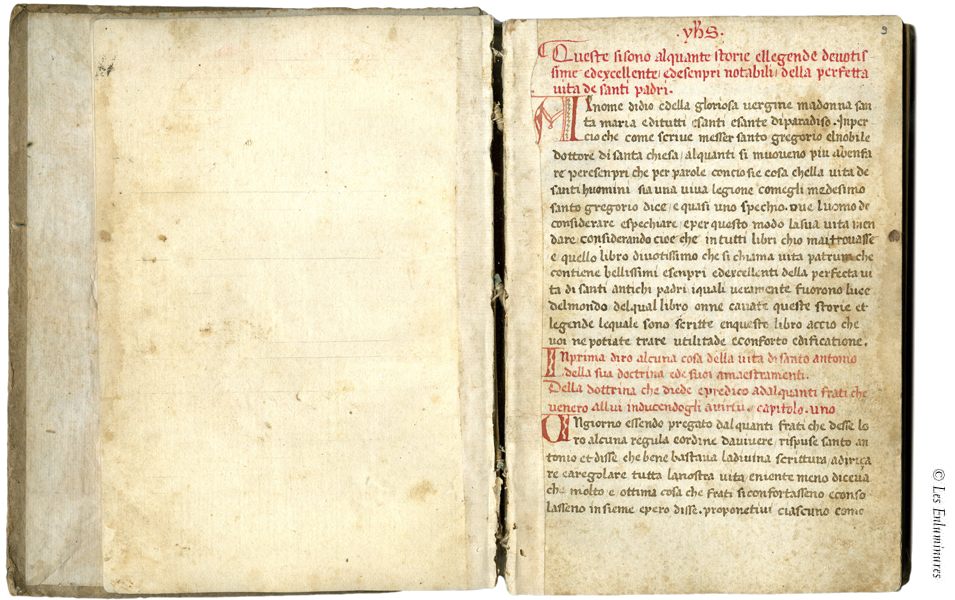 .yħs.
9
Queste sisono alquante storie ellegende deuotis
sime edexcellente edesenpri notabili della perfetta
uita de santi padri.
Al nome didio edella gloriosa uergine madonna san
ta maria editutti esanti esante diparadiso. Inper
cio che come scriue messer santo gregorio elnobile
dottore disanta chiesa alquanti si muoueno piu abenfa
re peresenpri che per parole conciosie cosa chella uita de
santi huomini sia una uiua legione comegli medesimo
santo gregorio dice e quasi uno spechio. oue luomo de
considerare especchiare eper questo modo lasua uita men
dare considerando cioe che in tutti libri chio mai trouasse
e quello libro diuotissimo che si chiama uita patrum che
contiene bellissimi esenpri edexcellenti della perfecta ui
ta di santi antichi padri iquali ueramente fuorono luce
delmondo delqual libro onne cauate queste storie et
legende lequale sono scritte enquesto libro accio che
uoi ne potiate trare utilitade econforto edificatione.
Inprima diro alcuna cosa della uita di santo antonio
della sua doctrina ede suoi amaestramenti.
Della dottrina che diede epredico adalquanti frati che
uenero allui inducendogli auirtu. capitolo. uno
Ongiorno essendo pregato dalquanti frati che desse lo
ro alcuna regula eordine dauiuere rispuse santo an
tonio et disse che bene bastaua ladiuina scrittura adiriça
re earegolare tutta lanostra uita eniente meno diceua
che molto e ottima cosa che frati siconfortasseno econso
lasseno insieme epero disse. proponetiui ciascuno como
© Les Enluminures